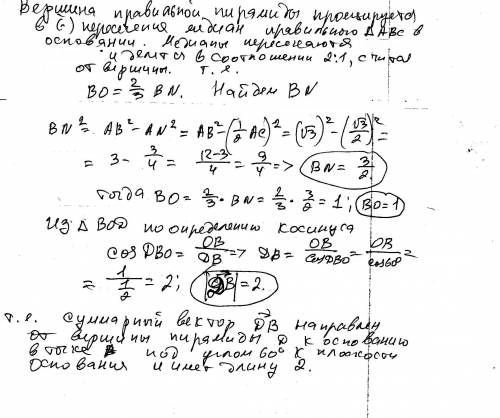 Вершина правильной пирамиды проецируется
в (·) пересечения медиан правильного ΔАВС в
основании. Медианы пересекаются
и делятся в соотношении 2:1, считая
от вершины. т. е.
BO = 2/3 BN. Найдем BN
BN² = AB² - AN² = AB² - (1/2 AC)² = (√3)² - (√3/2)² =
= 3 - 3/4 = (12-3)/4 = 9/4 => BN = 3/2
тогда BO = 2/3 · BN = 2/3 · 3/2 = 1; BO=1
Из Δ BOD по определению косинуса
cos DBO = OB/DB => DB = OB/cosDBO = OB/cos60 =
= 1/(1/2) = 2; |DB| = 2.
т. е. суммарный вектор DB направлен
от вершины пирамиды D к основанию
в точке под углом 60° к плоскости
основания и имеет длину 2.